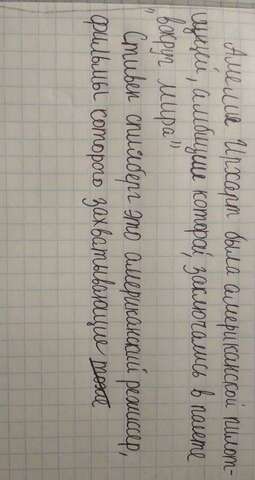 Амелия Ирхарт была американской пилот-
ицией, амбиции которой, заключались в полете
"вокруг мира"
Стивен спилберг это американский режиссер,
фильмы которого захватывающие